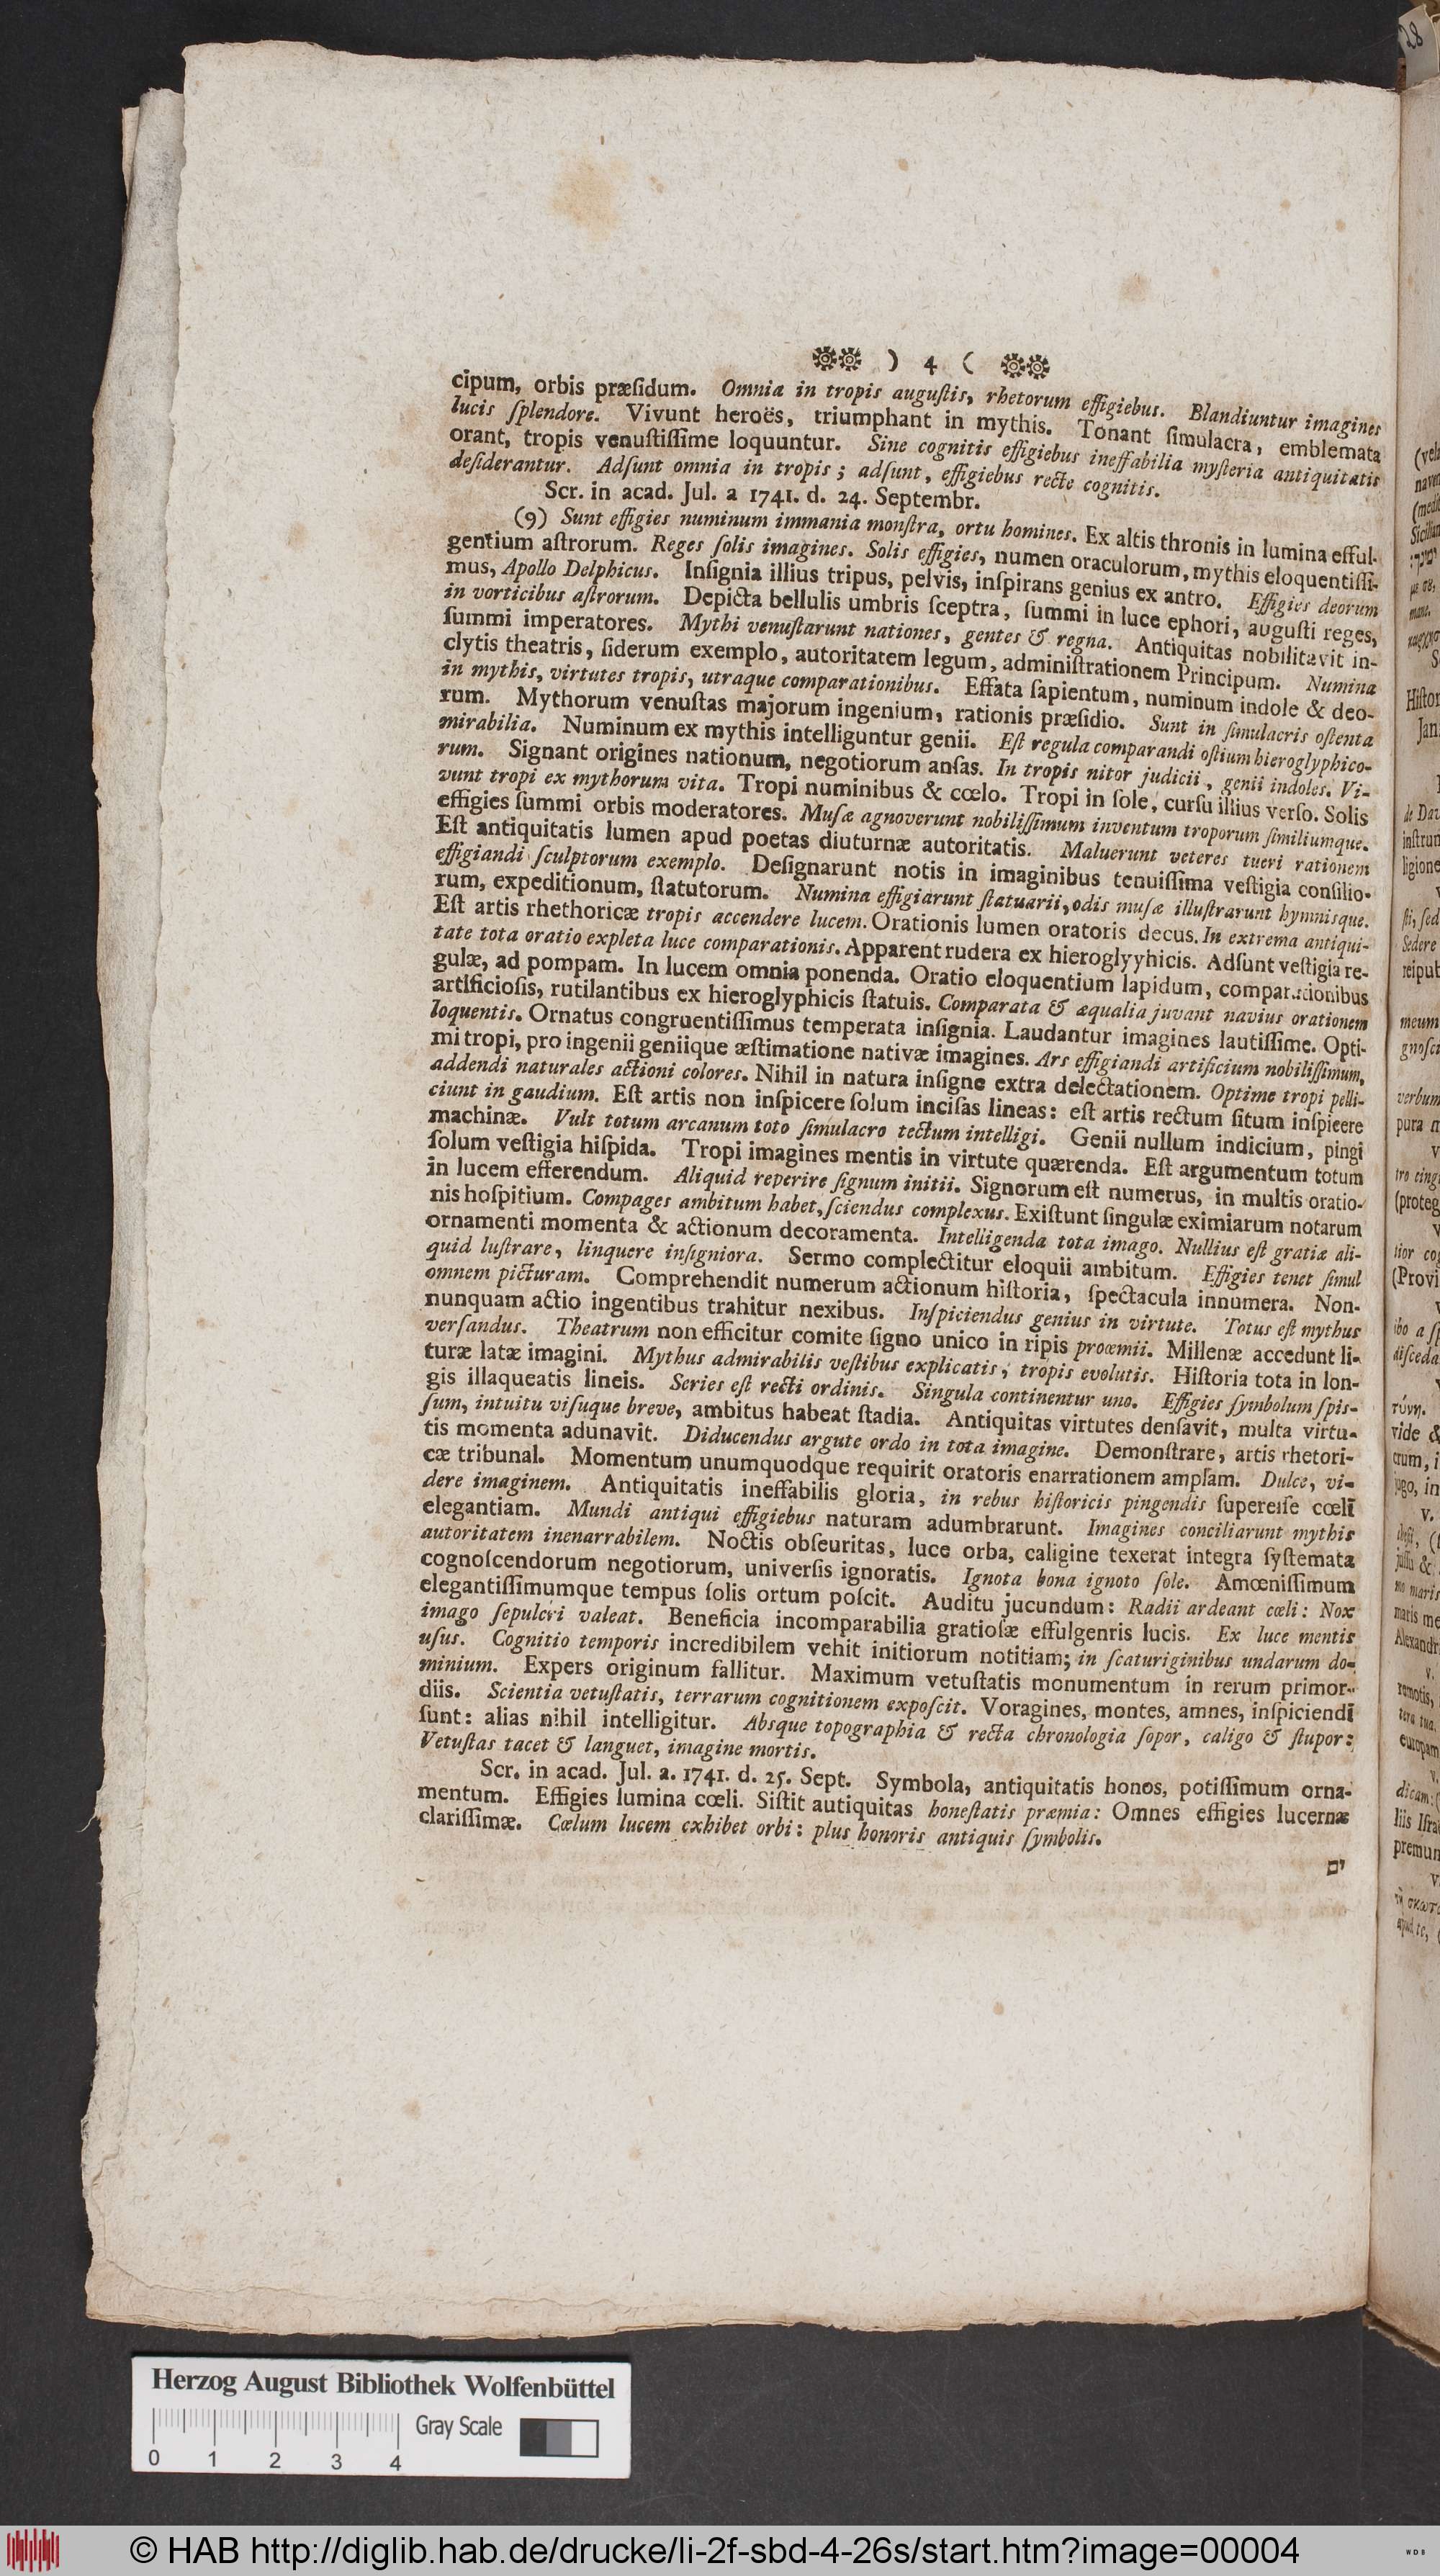 ) 4 (
cipum, orbis præſidum. Omnia in tropis auguſtis, rhetorum effigiebus. Blandiuntur imagines
lucis ſplendore. Vivunt heroës, triumphant in mythis. Tonant ſimulacra, emblemata
orant, tropis venuſtiſſime loquuntur. Sine cognitis effigiebus ineffabilia myſteria antiquitatis
deſiderantur. Adſunt omnia in tropis; adſunt, effigiebus recte cognitis.
Scr. in acad. Jul. a 1741. d. 24. Septembr.
(9) Sunt effigies numinum immania monſtra, ortu homines. Ex altis thronis in lumina efful-
gentium aſtrorum. Reges ſolis imagines. Solis effigies, numen oraculorum, mythis eloquentiſſi-
mus, Apollo Delphicus. Inſignia illius tripus, pelvis, inſpirans genius ex antro. Effigies deorum
in vorticibus aſtrorum. Depicta bellulis umbris ſceptra, ſummi in luce ephori, auguſti reges,
ſummi imperatores. Mythi venuſtarunt nationes, gentes & regna. Antiquitas nobilitavit in-
clytis theatris, ſiderum exemplo, autoritatem legum, adminiſtrationem Principum. Numina
in mythis, virtutes tropis, utraque comparationibus. Effata ſapientum, numinum indole & deo-
rum. Mythorum venuſtas majorum ingenium, rationis præſidio. Sunt in ſimulacris oſtenta
mirabilia. Numinum ex mythis intelliguntur genii. Eſt regula comparandi oſtium hieroglyphico-
rum. Signant origines nationum, negotiorum anſas. In tropis nitor judicii, genii indoles. Vi-
vunt tropi ex mythorum vita. Tropi numinibus & cœlo. Tropi in ſole, curſu illius verſo. Solis
effigies ſummi orbis moderatores. Muſæ agnoverunt nobiliſſimum inventum troporum ſimiliumque.
Eſt antiquitatis lumen apud poetas diuturnæ autoritatis. Maluerunt veteres tueri rationem
effigiandi ſculptorum exemplo. Deſignarunt notis in imaginibus tenuiſſima veſtigia conſilio-
rum, expeditionum, ſtatutorum. Numina effigiarunt ſtatuarii, odis muſæ illuſtrarunt hymnisque.
Eſt artis rhethoricæ tropis accendere lucem. Orationis lumen oratoris decus. In extrema antiqui-
tate tota oratio expleta luce comparationis. Apparent rudera ex hieroglyyhicis. Adſunt veſtigia re-
gulæ, ad pompam. In lucem omnia ponenda. Oratio eloquentium lapidum, comparationibus
artificioſis, rutilantibus ex hieroglyphicis ſtatuis. Comparata & æqualia juvant navius orationem
loquentis. Ornatus congruentiſſimus temperata inſignia. Laudantur imagines lautiſſime. Opti-
mi tropi, pro ingenii geniique æſtimatione nativæ imagines. Ars effigiandi artificium nobiliſſimum,
addendi naturales actioni colores. Nihil in natura inſigne extra delectationem. Optime tropi pelli-
ciunt in gaudium. Eſt artis non inſpicere ſolum inciſas lineas: eſt artis rectum ſitum inſpicere
machinæ. Vult totum arcanum toto ſimulacro tectum intelligi. Genii nullum indicium, pingi
ſolum veſtigia hiſpida. Tropi imagines mentis in virtute quærenda. Eſt argumentum totum
in lucem efferendum. Aliquid reperire ſignum initii. Signorum eſt numerus, in multis oratio-
nis hoſpitium. Compages ambitum habet, ſciendus complexus. Exiſtunt ſingulæ eximiarum notarum
ornamenti momenta & actionum decoramenta. Intelligenda tota imago. Nullius eſt gratiæ ali-
quid luſtrare, linquere inſigniora. Sermo complectitur eloquii ambitum. Effigies tenet ſimul
omnem picturam. Comprehendit numerum actionum hiſtoria, ſpectacula innumera. Non-
nunquam actio ingentibus trahitur nexibus. Inſpiciendus genius in virtute. Totus eſt mythus
verſandus. Theatrum non efficitur comite ſigno unico in ripis proœmii. Millenæ accedunt li-
turæ latæ imagini. Mythus admirabilis veſtibus explicatis, tropis evolutis. Hiſtoria tota in lon-
gis illaqueatis lineis. Series eſt recti ordinis. Singula continentur uno. Effigies ſymbolum ſpis-
ſum, intuitu viſuque breve, ambitus habeat ſtadia. Antiquitas virtutes denſavit, multa virtu-
tis momenta adunavit. Diducendus argute ordo in tota imagine. Demonſtrare, artis rhetori-
cæ tribunal. Momentum unumquodque requirit oratoris enarrationem amplam. Dulce, vi-
dere imaginem. Antiquitatis ineffabilis gloria, in rebus hiſtoricis pingendis ſupereſſe cœli
elegantiam. Mundi antiqui effigiebus naturam adumbrarunt. Imagines conciliarunt mythis
autoritatem inenarrabilem. Noctis obſeuritas, luce orba, caligine texerat integra ſyſtemata
cognoſcendorum negotiorum, univerſis ignoratis. Ignota bona ignoto ſole. Amœniſſimum
elegantiſſimumque tempus ſolis ortum poſcit. Auditu jucundum: Radii ardeant cœli: Nox
imago ſepulcri valeat. Beneficia incomparabilia gratioſæ effulgentis lucis. Ex luce mentis
uſus. Cognitio temporis incredibilem vehit initiorum notitiam; in ſcaturiginibus undarum do-
minium. Expers originum fallitur. Maximum vetuſtatis monumentum in rerum primor-
diis. Scientia vetuſtatis, terrarum cognitionem expoſcit. Voragines, montes, amnes, inſpiciendi
ſunt: alias nihil intelligitur. Absque topographia & recta chronologia ſopor, caligo & ſtupor:
Vetuſtas tacet & languet, imagine mortis.
Scr. in acad. Jul. a. 1741. d. 25. Sept. Symbola, antiquitatis honos, potiſſimum orna-
mentum. Effigies lumina cœli. Siſtit autiquitas honeſtatis præmia: Omnes effigies lucernæ
clariſſimæ. Cœlum lucem exhibet orbi: plus honoris antiquis ſymbolis.
ים
28
Herzog August Bibliothek Wolfenbüttel
Gray Scale
0 1 2 3 4
© HAB http://diglib.hab.de/drucke/li-2f-sbd-4-26s/start.htm?image=00004
WDB